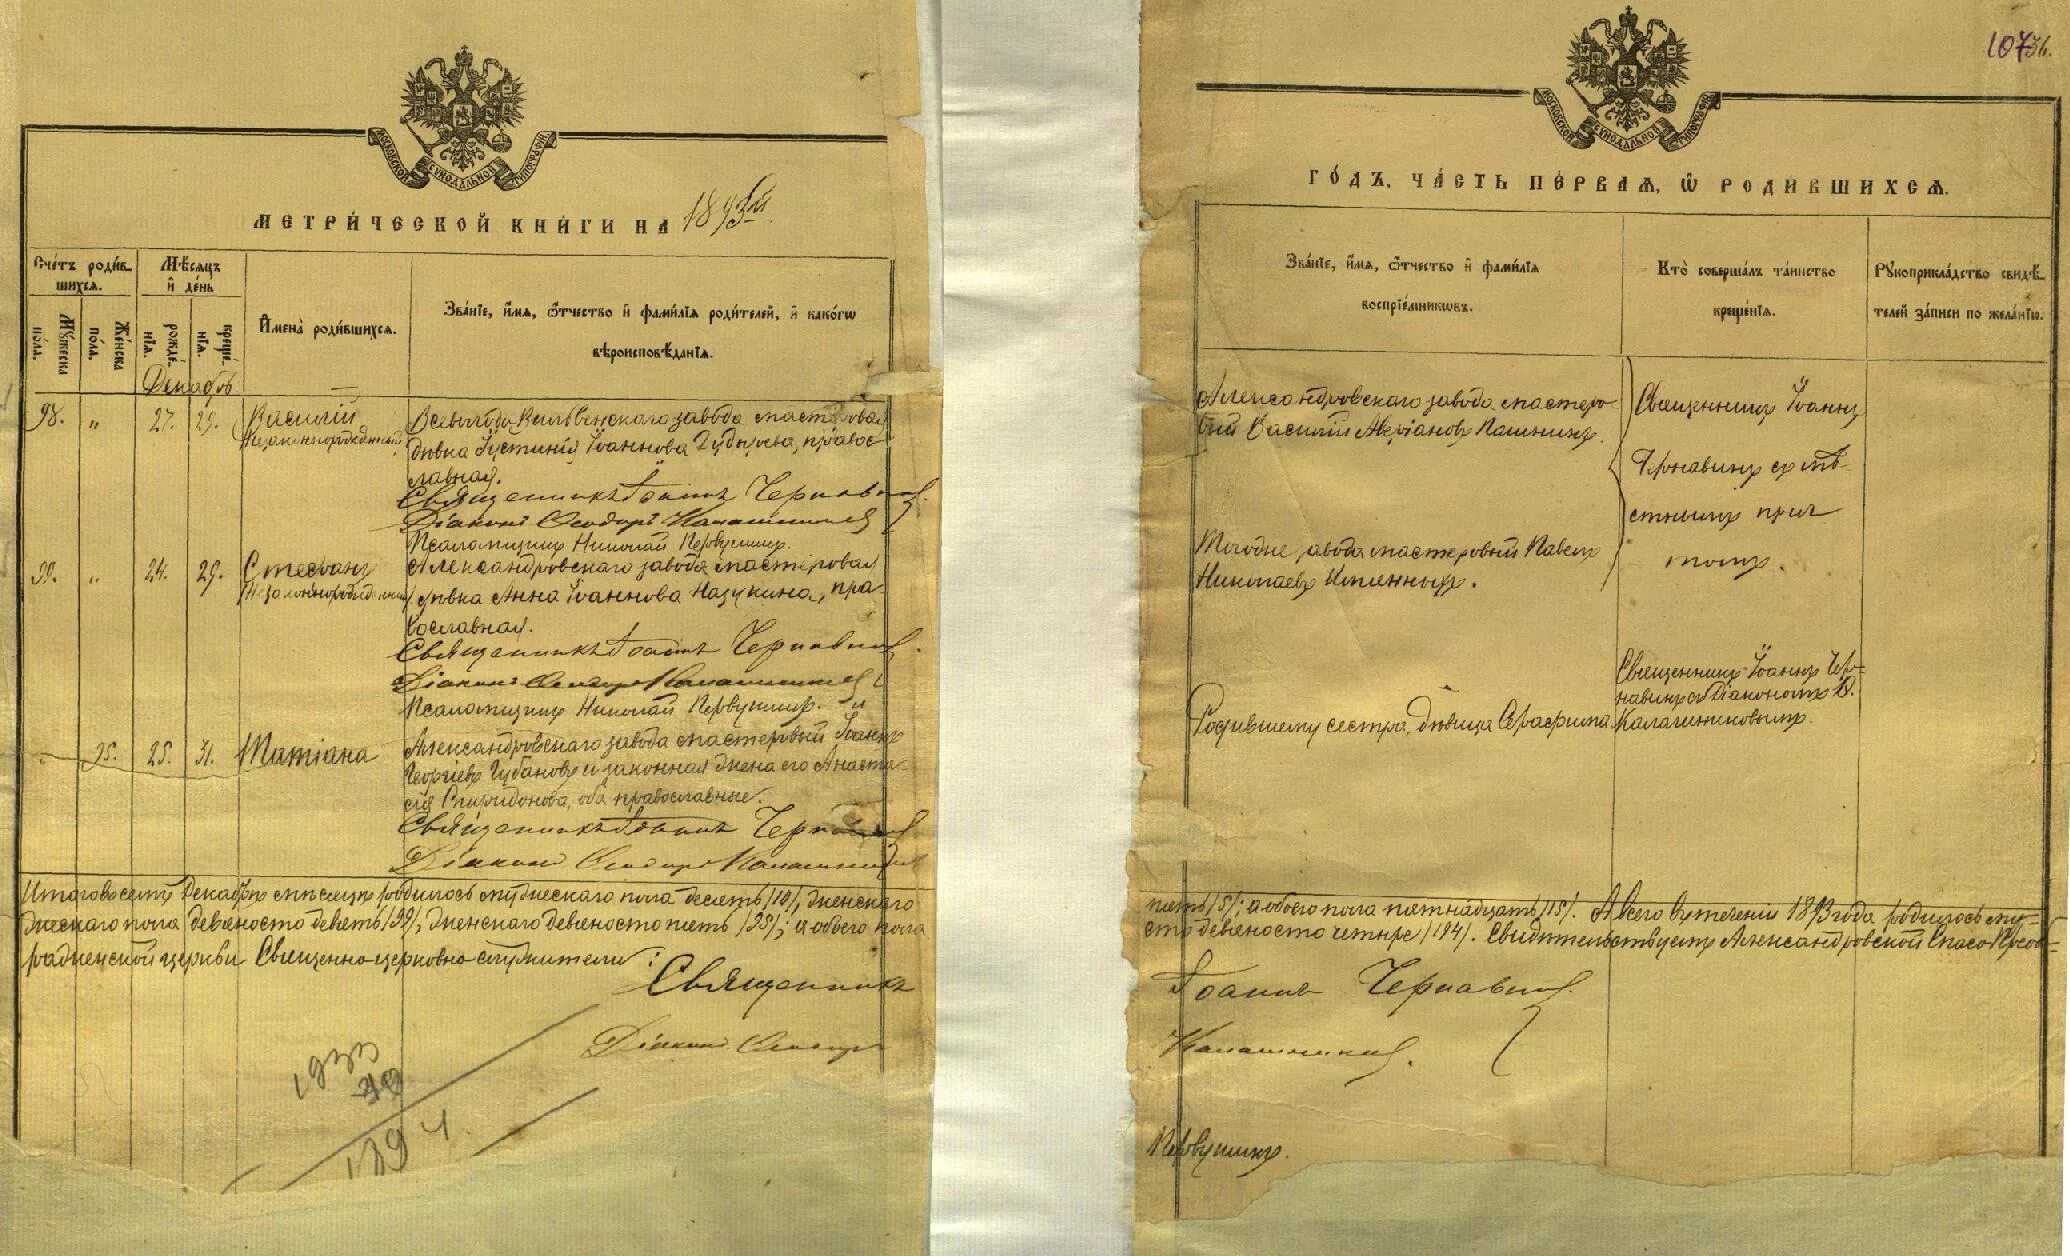 МОСКОВСКОЙ СѴНОДАЛЬНОЙ ТИПОГРАФІИ
МЕТРИ́ЧЕСКОЙ КНИ́ГИ НА 1893й
Сче́тъ роди́в-
шихся.
Мꙋжеска
по́ла.
Же́нска
по́ла.
Мѣ́сяцъ
и҆ де́нь
рожде́-
нїя.
креще́-
нїя.
И҆мена̀ роди́вшихся.
Зва́нїе, и҆́мя, ѻ҆́тчество и҆ фами́лїя роди́телей, и҆ како́гѡ
вѣроисповѣ́данїя.
Декабрь
98. " 27. 29. Василій
Незаконнорожденный
Всеволодо Вильвенскаго завода мастеровая
дѣвка Іустинія Іоаннова Губдырева, правос
лавная.
Священникъ Іоаннъ Чернавинъ
Діаконъ Ѳеодоръ Калашников
Псаломщикъ Николай Первушинъ.
99. " 24. 29. Стефанъ
Незаконнорожденный
Александровскаго завода мастеровая
дѣвка Анна Іоаннова Назукина, пра-
вославная.
Священникъ Іоаннъ Чернавинъ.
Діаконъ Ѳеодоръ Калашников
Псаломщикъ Николай Первушинъ.
" 95. 25. 31. Татіана
Александровскаго завода мастеровый Іоаннъ
Георгіевъ Губановъ и законная жена его Анаста-
сія Спиридонова, оба православные.
Священникъ Іоаннъ Чернавинъ
Діаконъ Ѳеодоръ Калашников
Итого въ семъ Декабрѣ мѣсяцѣ родилось мужескаго пола десять /10/, женскаго
жескаго пола девяносто девять /99/, женскаго девяносто пять /95/; и обоего пола
раженской церкви Священно-церковно-служители:
Священникъ
Діаконъ Ѳеодоръ
1933
39
1894
107 36.
МОСКОВСКОЙ СѴНОДАЛЬНОЙ ТИПОГРАФІИ
ГО́ДЪ, ЧА́СТЬ ПЕ́РВАЯ, Ѡ҆ РОДИ́ВШИХСЯ.
Зва́нїе, и҆́мя, ѻ҆́тчество и҆ фами́лїя
воспрїе́мникѡвъ.
Кто̀ соверша́лъ та́инство
креще́нїя.
Рꙋкоприкла́дство свидѣ́-
телей за́писи по жела́нїю.
Александровскаго завода мастеро-
вый Василій Аверіановъ Пашнинъ.
Священникъ Іоаннъ
Чернавинъ съ мѣ-
стнымъ прич
томъ.
Тогоже завода мастеровый Павелъ
Николаевъ
Родившему сестра, дѣвица Серафима
Священникъ Іоаннъ Чер-
навинъ съ Діакономъ Ѳ.
Калашниковымъ.
пять /5/; а обоего пола пятнадцать /15/. А всего въ теченіи 1893 года родилось му-
сто девяносто четыре /194/. Свидѣтельствуемъ Александровской Спасо-Преоб-
Іоаннъ Чернавинъ.
Калашников.
Первушинъ.